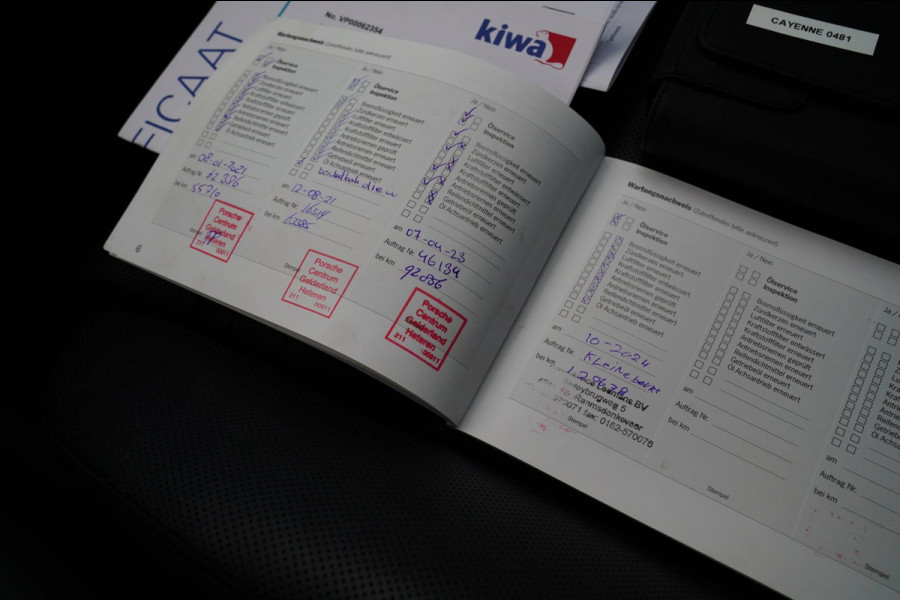 No. VP00062354
kiwa
FICAAT
CAYENNE 0481
Wartungsnachweis (Zutreffendes bitte ankreuzen!)
Ja / Nein
Ölservice
Inspektion
Bremsflüssigkeit erneuert
Zündkerzen erneuert
Luftfilter erneuert
Kraftstofffilter entwässert
Kraftstofffilter erneuert
Antriebsriemen geprüft
Antriebsriemen erneuert
Reifendichtmittel erneuert
Getriebeöl erneuert
Öl Achsantrieb erneuert
am 08-01-2021
Auftrag Nr.
bei km 55710
Porsche
Centrum
Gelderland
Heteren
211 00911
6
Ja / Nein
Ölservice
Inspektion
Bremsflüssigkeit erneuert
Zündkerzen erneuert
Luftfilter erneuert
Kraftstofffilter entwässert
Kraftstofffilter erneuert
Antriebsriemen geprüft
Antriebsriemen erneuert
Reifendichtmittel erneuert
Getriebeöl erneuert
Öl Achsantrieb erneuert
am 12-08-21
Auftrag Nr.
bei km
Porsche
Centrum
Gelderland
Heteren
211 00911
Ja / Nein
Ölservice
Inspektion
Bremsflüssigkeit erneuert
Zündkerzen erneuert
Luftfilter erneuert
Kraftstofffilter entwässert
Kraftstofffilter erneuert
Antriebsriemen geprüft
Antriebsriemen erneuert
Reifendichtmittel erneuert
Getriebeöl erneuert
Öl Achsantrieb erneuert
am 07-04-23
Auftrag Nr. 46134
bei km 92836
Porsche
Centrum
Gelderland
Heteren
211 00911
Wartungsnachweis (Zutreffendes bitte ankreuzen!)
Ja / Nein
Ölservice
Inspektion
Bremsflüssigkeit erneuert
Zündkerzen erneuert
Luftfilter erneuert
Kraftstofffilter entwässert
Kraftstofffilter erneuert
Antriebsriemen geprüft
Antriebsriemen erneuert
Reifendichtmittel erneuert
Getriebeöl erneuert
Öl Achsantrieb erneuert
am 10-2024
Auftrag Nr. Kleinebeurt
bei km
BV
5
Raamsdonksveer
fax: 0162-570076
Stempel
Ja / Nein
Ölservice
Inspektion
Bremsflüssigkeit erneuert
Zündkerzen erneuert
Luftfilter erneuert
Kraftstofffilter entwässert
Kraftstofffilter erneuert
Antriebsriemen geprüft
Antriebsriemen erneuert
Reifendichtmittel erneuert
Getriebeöl erneuert
Öl Achsantrieb erneuert
am
Auftrag Nr.
bei km
Stempel
am
Auftrag Nr.
bei km
Stempel